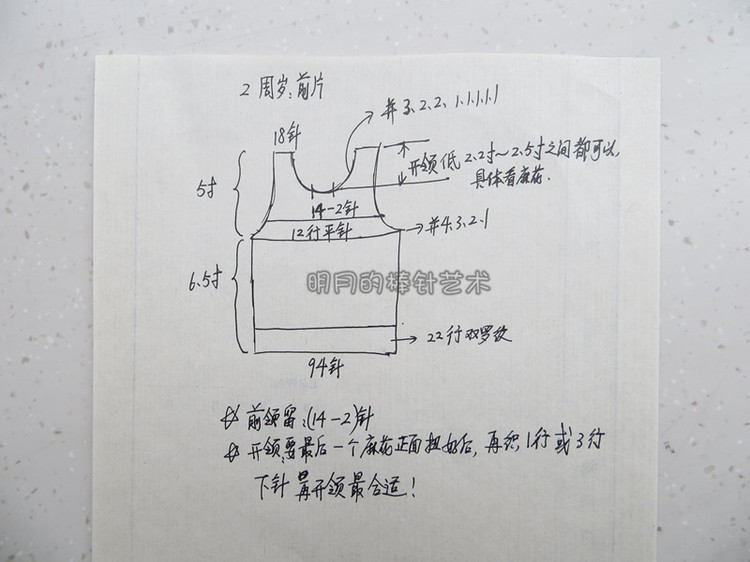 2周岁:前片
并3.2.2.1.1.1.1.1
18针
开领低2.2寸~2.5寸之间都可以,
具体看麻花.
5寸
14-2针
12行平针
并4.3.2.1
6.5寸
明月的棒针艺术
22行双罗纹
94针
前领留:(14-2)针
开领:要最后一个麻花正面扭好后,再织1行或3行
下针再开领最合适!